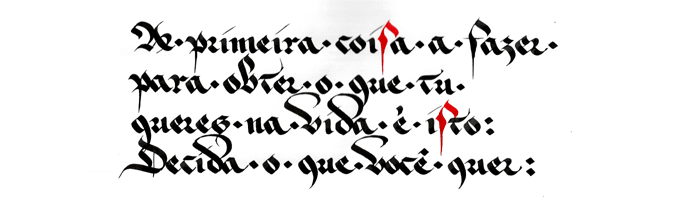 A·primeira·coiſa·a·fazer·
para·obter·o·que·tu·
queres·na·vida·é·iſto:
Decida·o·que·você·quer: